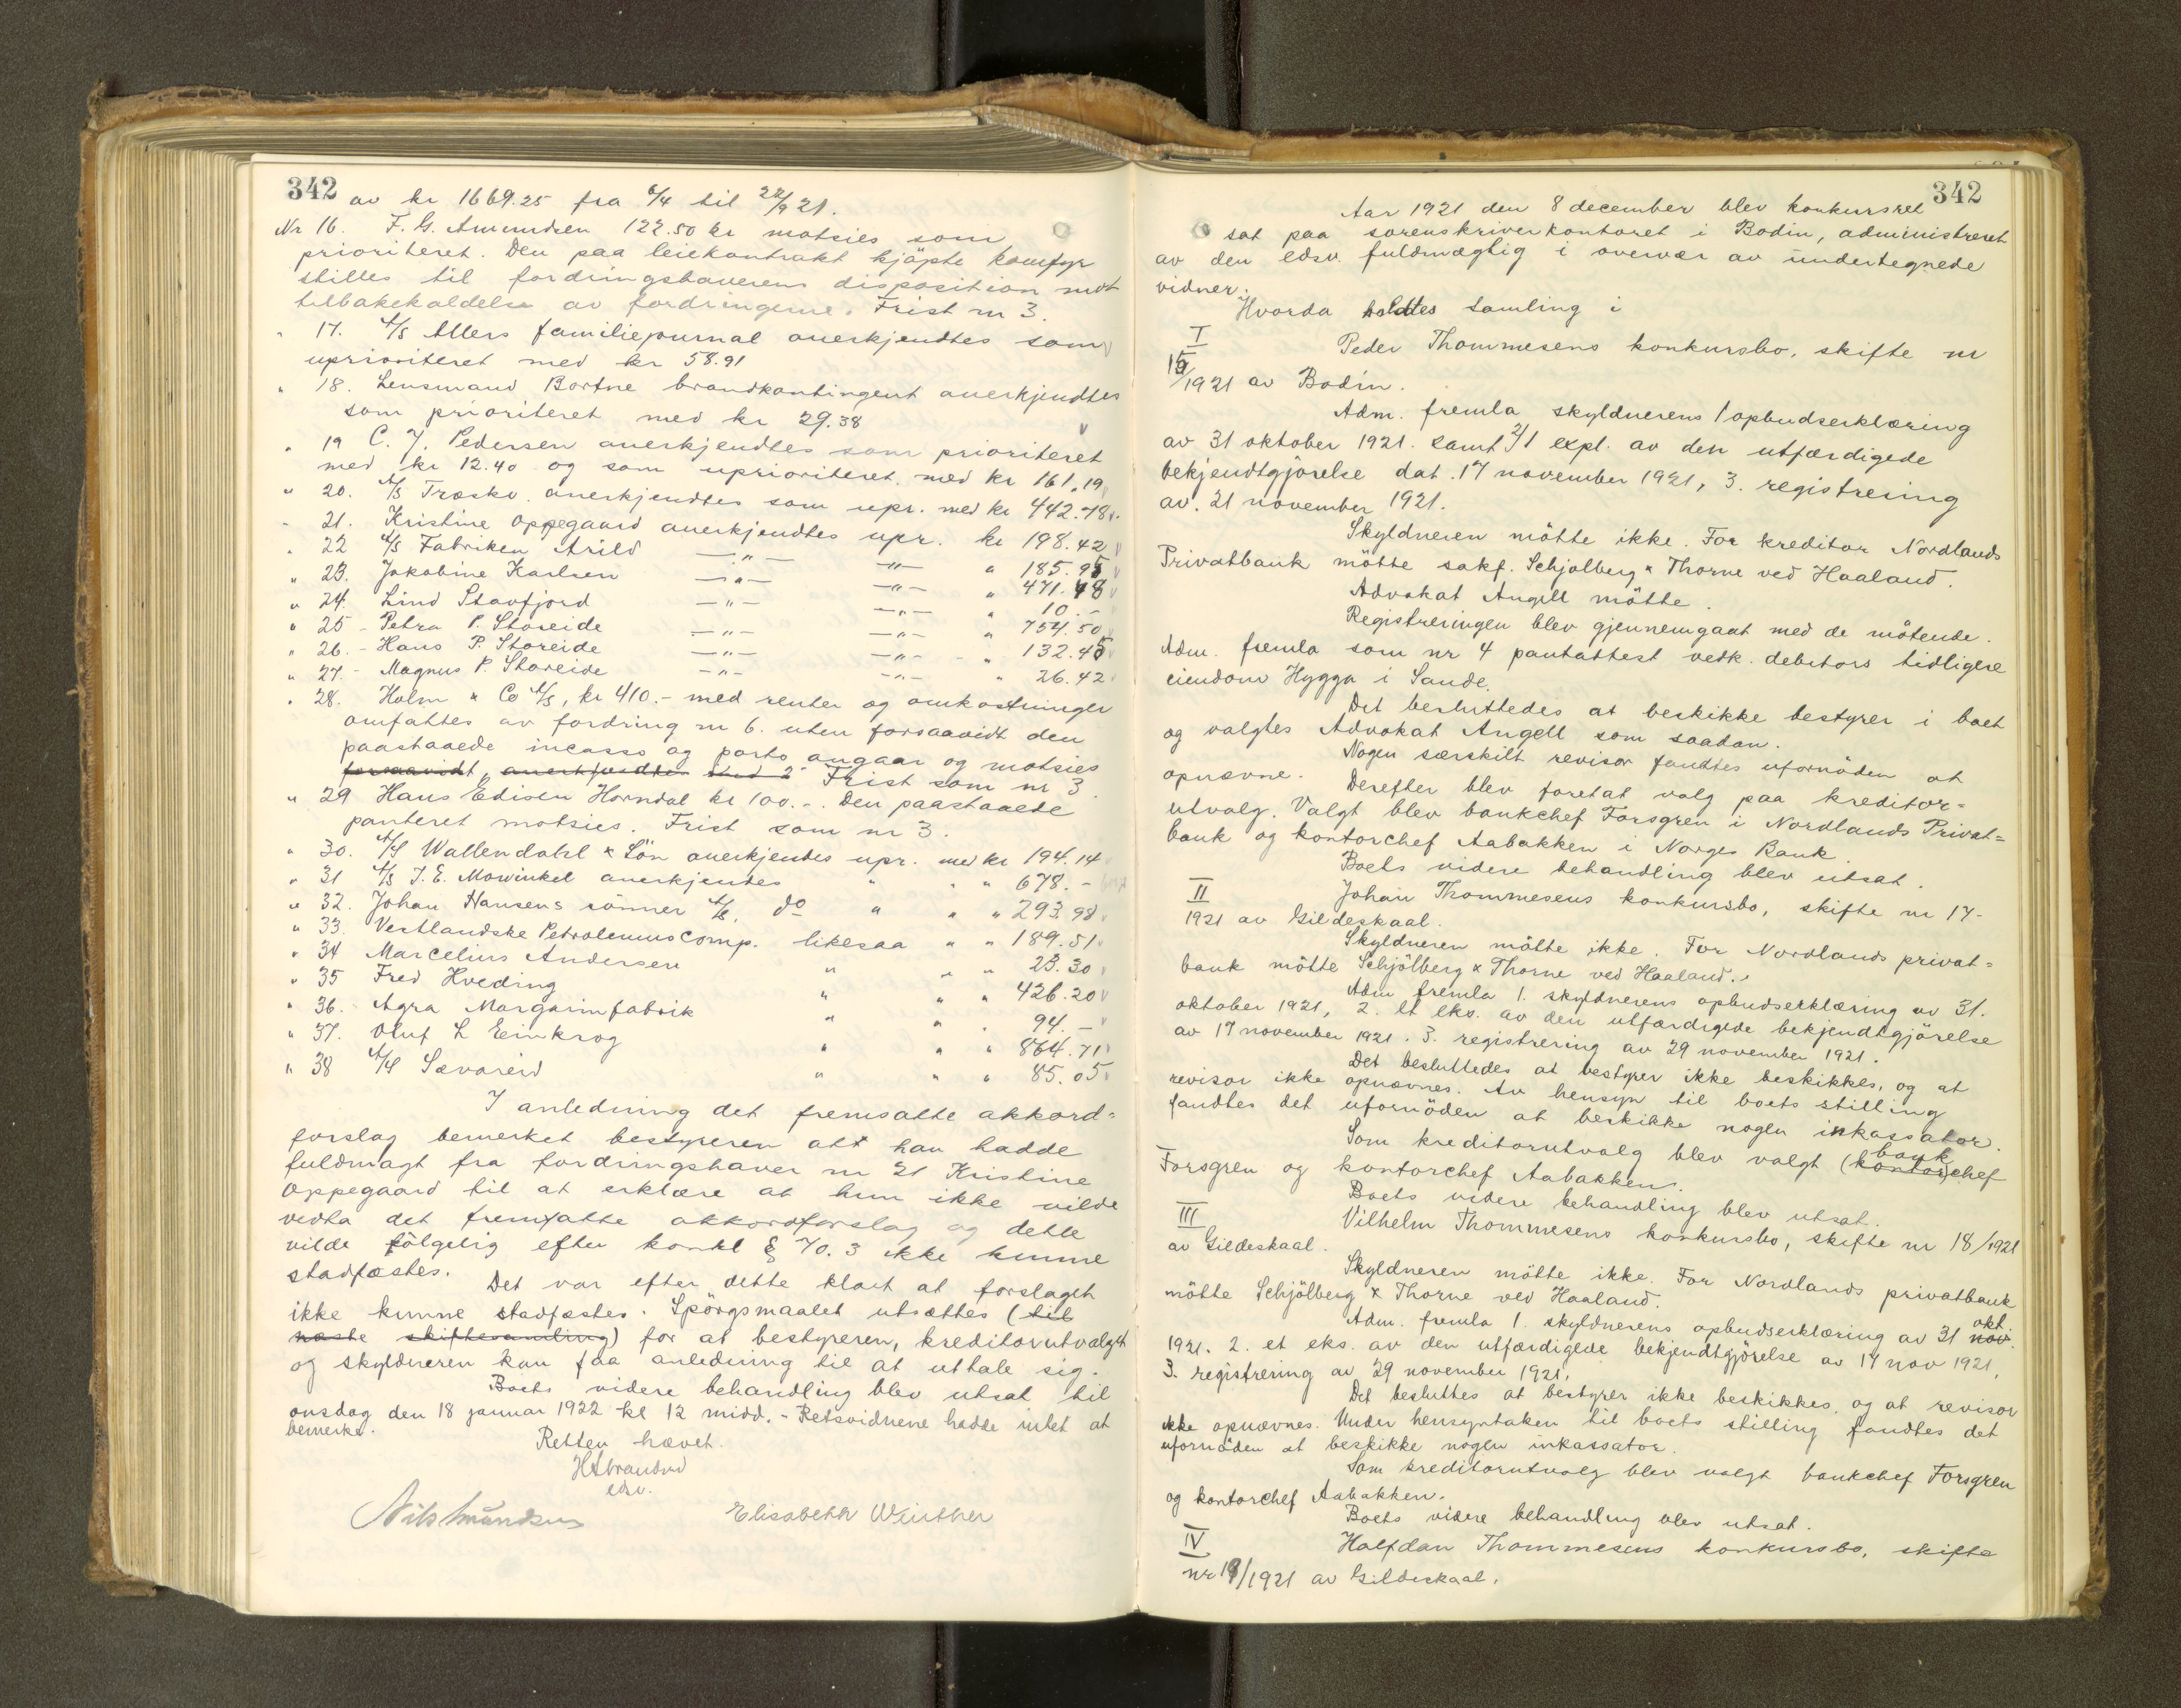 342
av kr 1669.25 fra 6/4 til 22/9 21.
Nr 16. F. G. Amundsen 122.50 kr motsies som
prioriteret. Den paa leiekontrakt kjöpte komfyr
stilles til fordringshaverens disposition mot
tilbakekaldelse av fordringerne. Frist nr 3.
" 17. A/S Allers familiejournal anerkjendtes som
uprioriteret med kr 58.91
" 18. Lensmand Bortne brandkontingent anerkjendtes
som prioriteret med kr 29.38
" 19 C. J. Pedersen anerkjendtes som prioriteret
med kr 12.40 og som uprioriteret med kr 161.19
" 20. A/S Træsko. anerkjendtes som upr. med kr 442.78
" 21. Kristine Oppegaard anerkjendtes upr. kr 198.42
" 22 A/S Fabriken Arild —"— —"— " 185.95
" 23. Jakobine Karlsen —"— —"— " 471.48
" 24. Lind Stavfjord —"— —"— " 10.-
" 25 - Petra P. Storeide —"— —"— " 754.50
" 26. - Hans P. Storeide —"— —"— " 132.45
" 27. - Magnus P. Storeide —"— —"— " 26.42
" 28. Holm & Co A/S, kr 410.- med renter og omkostninger
omfattes av fordring nr 6. uten forsaavidt den
paastaaede incasso og porto angaar og motsies
forsaavidt, anerkjendtes med 2 Frist som nr 3.
" 29 Hans Edisen Horndal kr 100.-. Den paastaaede
panteret motsies. Frist som nr 3.
" 30. A/S Wallendahl & Sön anerkjendes upr. med kr 194.14
" 31 A/S J. E. Mowinkel anerkjendes " " " 678.-
" 32. Johan Hansens sönner A/S. do " " " 293.98
" 33. Vestlandske Petroleumscomp. likesaa " " 189.51
" 34 Marcelius Andersen " " " 23.30
" 35 Fred Hveding " " " 426.20
" 36. Agra Margarinfabrik " " " 94.-
" 37. Oluf L Eeinkrog " " " 864.71
" 38 A/S Sævareid " " " 85.05
I anledning det fremsatte akkord=
forslag bemerket bestyreren att han hadde
fuldmagt fra fordringshaver nr 21 Kristine
Oppegaard til at erklære at hun ikke vilde
vedta det fremsatte akkordforslag og dette
vilde fölgelig efter konkl § 70. 3 ikke kunne
stadfæstes.
Det var efter dette klart at forslaget
ikke kunne stadfæstes. Spörgsmaalet utsættes (til
næste skiftesamling) for at bestyreren, kreditorutvalget
og skyldneren kan faa anledning til at uttale sig.
Boets videre behandling blev utsat til
onsdag den 18 januar 1922 kl 12 midd. - Retsvidnene hadde intet at
bemerke.
Retten hævet.
edsv.
Nils Amundsen Elisabeth Winther
342
Aar 1921 den 8 december blev konkursret
sat paa sorenskriverkontoret i Bodin, administreret
av den edsv. fuldmægtig i overvær av undertegnede
vidner.
Hvorda holdtes samling i
I Peder Thommesens konkursbo, skifte nr
15/1921 av Bodin.
Adm. fremla skyldnerens 1 opbudserklæring
av 31 oktober 1921. samt 2/1 expl. av den utfærdigede
bekjendtgjörelse dat. 17 november 1921, 3. registrering
av. 21 november 1921.
Skyldneren mötte ikke. For kreditor Nordlands
Privatbank mötte sakf. Schjolberg & Thorne ved Haaland.
Advokat Angell mötte.
Registreringen blev gjennemgaat med de mötende.
Adm. fremla som nr 4 pantattest vedk. debitors tidligere
eiendom Hygga i Sande.
Det besluttedes at beskikke bestyrer i boet
og valgtes Advokat Angell som saadan.
Nogen særskilt revisor fandtes ufornöden at
opnævne.
Derefter blev foretat valg paa kreditor=
utvalg. Valgt blev bankchef Forsgren i Nordlands Privat=
bank og kontorchef Aabakken i Norges Bank.
Boets videre behandling blev utsat.
II Johan Thommesens konkursbo, skifte nr 17-
1921 av Gildeskaal.
Skyldneren mötte ikke. For Nordlands privat=
bank mötte Schjölberg & Thorne ved Haaland.
Adm fremla 1. skyldnerens opbudserklæring av 31.
oktober 1921, 2. et eks. av den utfærdigede bekjendtgjörelse
av 17 november 1921. 3. registrering av 29 november 1921.
Det besluttedes at bestyrer ikke beskikkes, og at
revisor ikke opnævnes. Av hensyn til boets stilling
fandtes det ufornöden at beskikke nogen inkassator.
Som kreditorutvalg blev valgt (kontor) bank chef
Forsgren og kontorchef Aabakken.
Boets videre behandling blev utsat.
III Vilhelm Thommesens konkursbo, skifte nr 18/1921
av Gildeskaal.
Skyldneren mötte ikke. For Nordlands privatbank
mötte Schjölberg & Thorne ved Haaland.
Adm. fremla 1. skyldnerens opbudserklæring av 31 nov. okt.
1921. 2. et eks. av den utfærdigede bekjendtgjörelse av 17 nov 1921,
3. registrering av 29 november 1921.
Det besluttes at bestyrer ikke beskikkes, og at revisor
ikke opnævnes. Under hensyntaken til boets stilling fandtes det
ufornöden at beskikke nogen inkassator.
Som kreditorutvalg blev valgt bankchef Forsgren
og kontorchef Aabakken.
Boets videre behandling blev utsat.
IV Halfdan Thommesens konkursbo, skifte
nr 19/1921 av Gildeskaal.